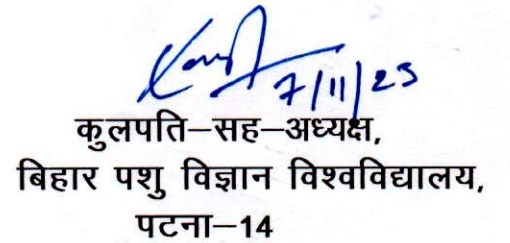 7/11/25
कुलपति–सह–अध्यक्ष,
बिहार पशु विज्ञान विश्वविद्यालय,
पटना–14